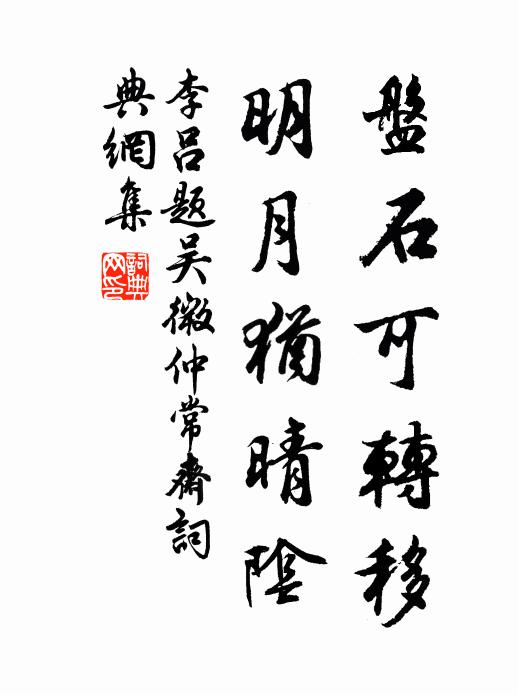 盤石可轉移
明月猶晴陰
李呂題吴微仲常齋詞
典網集
詞典
网印